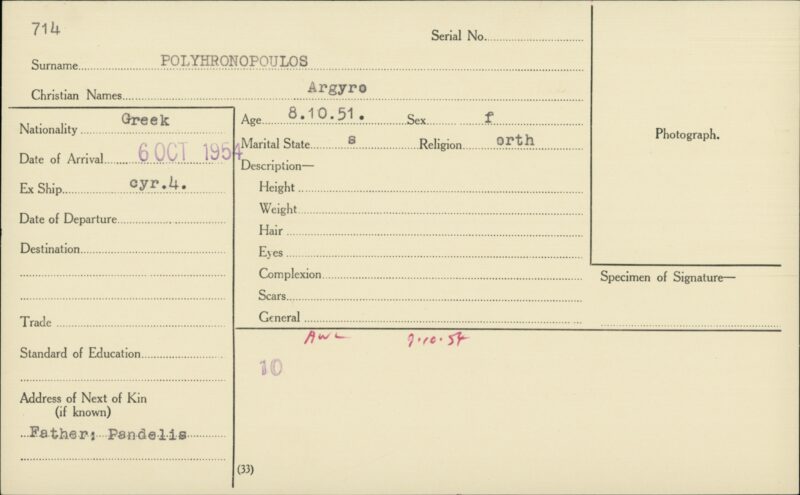 714
Serial No.
Surname POLYHRONOPOULOS
Christian Names Argyro
Nationality Greek
Date of Arrival 6 OCT 1954
Ex Ship cyr.4.
Date of Departure
Destination
Trade
Standard of Education
Address of Next of Kin
(if known)
Father; Pandelis
Age 8.10.51. Sex f
Marital State s Religion orth
Description—
Height
Weight
Hair
Eyes
Complexion
Scars
General
AWL 9.10.54
10
(33)
Photograph.
Specimen of Signature—